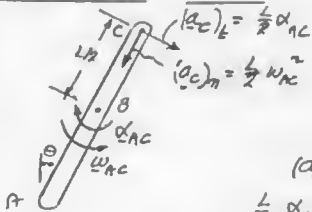 C
(a_C)_t = L/2 α_AC
L/2
(a_C)_n = L/2 ω_AC²
B
α_AC
θ
ω_AC
(a
A
L/2 α